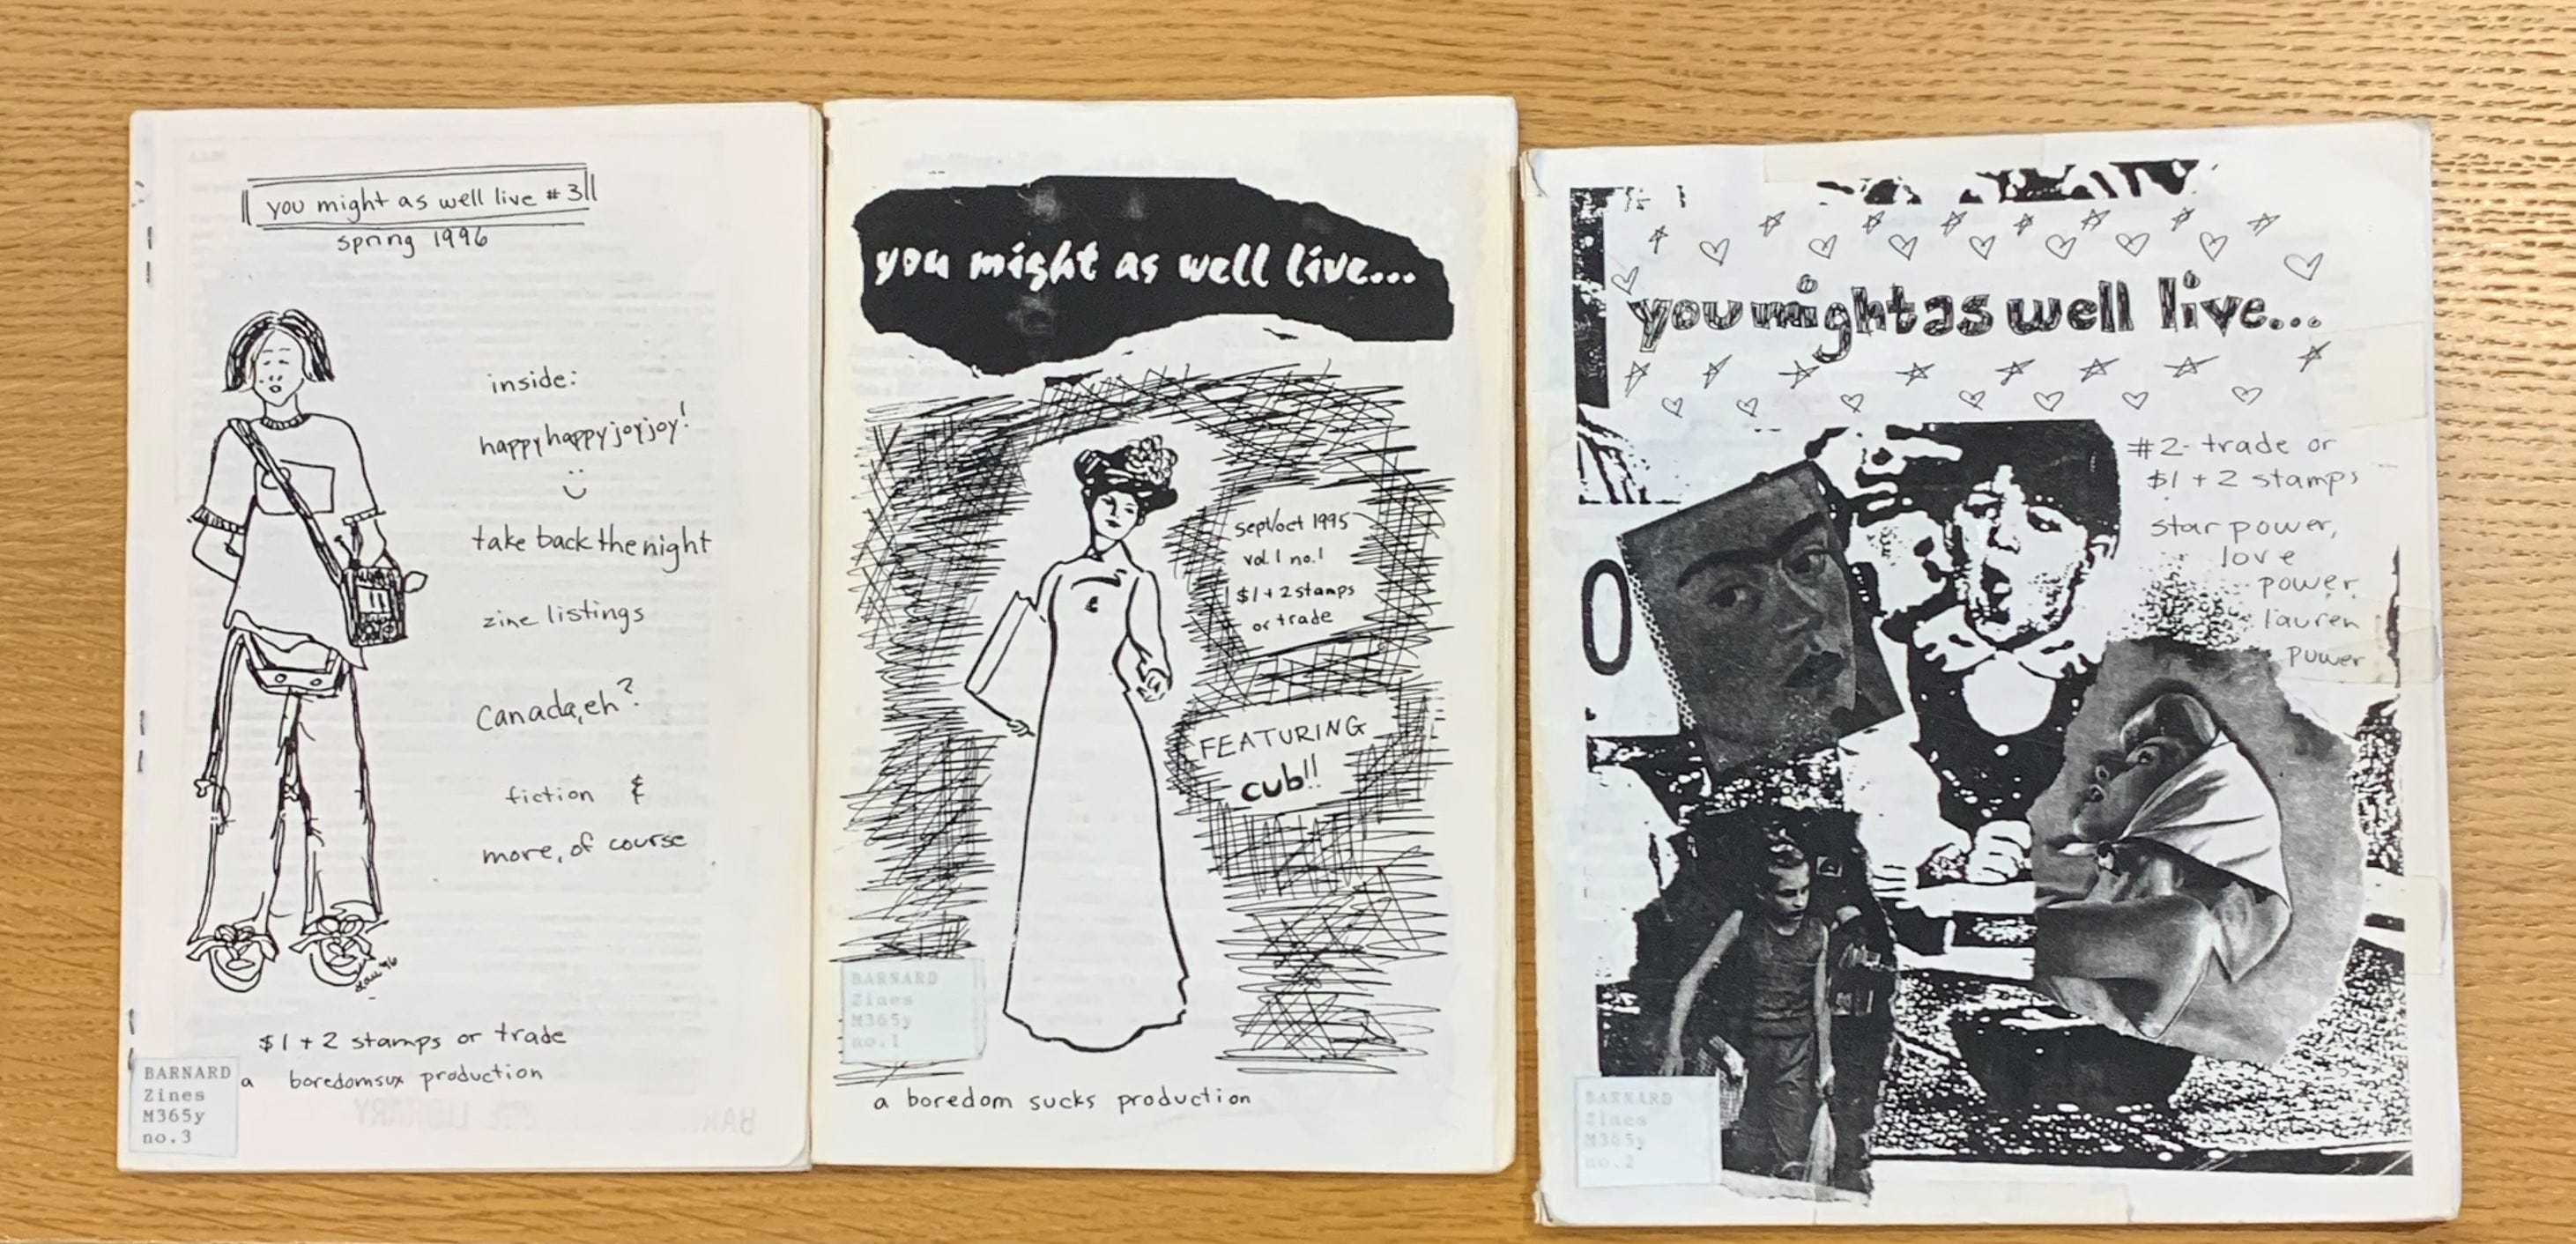 you might as well live #3
spring 1996
inside:
happyhappyjoyjoy!
take back the night
zine listings
Canada, eh?
fiction &
more, of course
Lau '96
$1 + 2 stamps or trade
a boredomsux production
BARNARD
Zines
M365y
no.3
BAR LIBRARY
you might as well live...
sept/oct 1995
vol. 1 no. 1
$1 + 2 stamps
or trade
FEATURING
cub!!
BARNARD
Zines
M365y
no.1
a boredom sucks production
you might as well live...
#2 - trade or
$1 + 2 stamps
star power,
love
power,
lauren
power
BARNARD
Zines
M365y
no.2